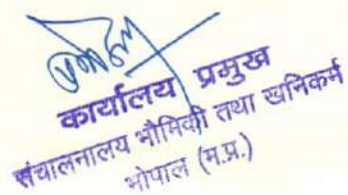 कार्यालय प्रमुख
संचालनालय भौमिकी तथा खनिकर्म
भोपाल (म.प्र.)